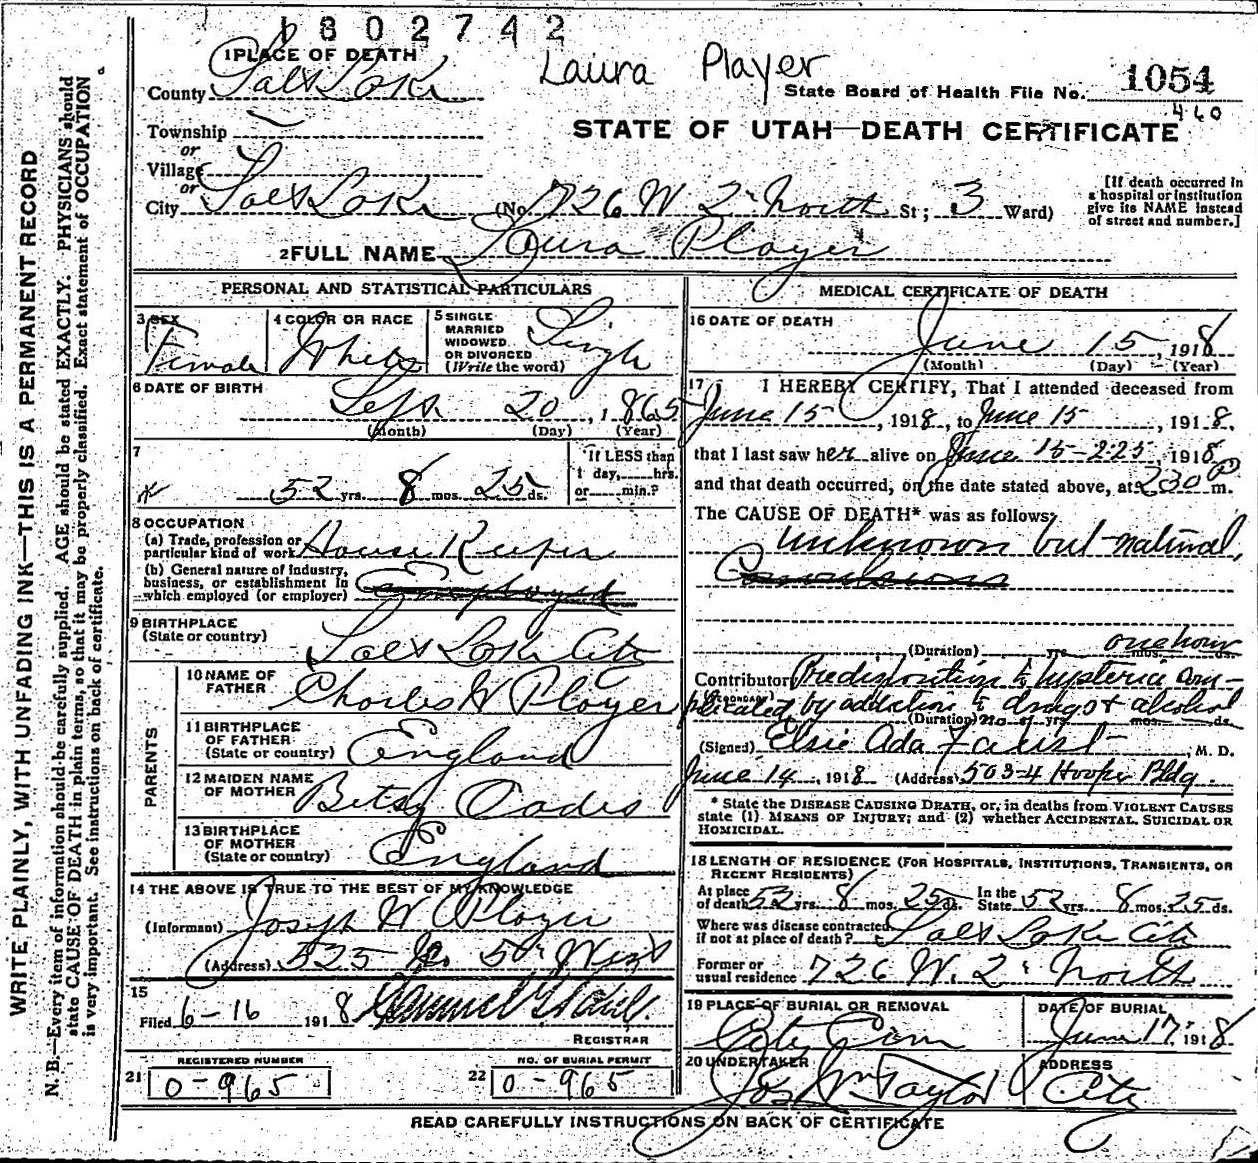 1802742
1 PLACE OF DEATH
Laura Player
County Salt Lake
State Board of Health File No. 1054
460
Township
STATE OF UTAH—DEATH CERTIFICATE
or
Village
or
City Salt Lake (No. 726 W 2d North St; 3 Ward)
[If death occurred in
a hospital or institution
give its NAME instead
of street and number.]
2 FULL NAME Laura Player
WRITE PLAINLY, WITH UNFADING INK—THIS IS A PERMANENT RECORD
N. B.—Every item of information should be carefully supplied. AGE should be stated EXACTLY. PHYSICIANS should
state CAUSE OF DEATH in plain terms, so that it may be properly classified. Exact statement of OCCUPATION
is very important. See instructions on back of certificate.
PERSONAL AND STATISTICAL PARTICULARS
3 SEX
Female
4 COLOR OR RACE
White
5 SINGLE
MARRIED
WIDOWED
OR DIVORCED
(Write the word)
Single
6 DATE OF BIRTH
Sept 20, 1865
(Month) (Day) (Year)
7
52 yrs. 8 mos. 25 ds.
If LESS than
1 day, hrs.
or min.?
8 OCCUPATION
(a) Trade, profession or
particular kind of work House Keeper
(b) General nature of industry,
business, or establishment in
which employed (or employer) Employed
9 BIRTHPLACE
(State or country) Salt Lake City
PARENTS
10 NAME OF
FATHER Charles W Player
11 BIRTHPLACE
OF FATHER
(State or country) England
12 MAIDEN NAME
OF MOTHER Betsy Oades
13 BIRTHPLACE
OF MOTHER
(State or country) England
14 THE ABOVE IS TRUE TO THE BEST OF MY KNOWLEDGE
(Informant) Joseph W Player
(Address) 525 No. 5th West
15
Filed 6-16 1918
REGISTRAR
REGISTERED NUMBER
21 0-965
NO. OF BURIAL PERMIT
22 0-965
MEDICAL CERTIFICATE OF DEATH
16 DATE OF DEATH
June 15, 1918
(Month) (Day) (Year)
17 I HEREBY CERTIFY, That I attended deceased from
June 15, 1918, to June 15, 1918,
that I last saw her alive on June 15-2:25, 1918
and that death occurred, on the date stated above, at 230 P m.
The CAUSE OF DEATH* was as follows:
Unknown but natural,
Convulsions
(Duration) yrs. mos. ds. one hour
Contributory Predisposition to hysteria com-
(SECONDARY) plicated by addiction to drugs & alcohol
(Duration) no of yrs. mos. ds.
(Signed) Elsie Ada Faust, M. D.
June 14, 1918 (Address) 503-4 Hooper Bldg.
* State the DISEASE CAUSING DEATH, or, in deaths from VIOLENT CAUSES
state (1) MEANS OF INJURY; and (2) whether ACCIDENTAL, SUICIDAL OR
HOMICIDAL.
18 LENGTH OF RESIDENCE (FOR HOSPITALS, INSTITUTIONS, TRANSIENTS, OR
RECENT RESIDENTS)
At place
of death 52 yrs. 8 mos. 25 ds. In the
State 52 yrs. 8 mos. 25 ds.
Where was disease contracted
if not at place of death? Salt Lake City
Former or
usual residence 726 W. 2d North
19 PLACE OF BURIAL OR REMOVAL
City Cem
DATE OF BURIAL
June 17, 1918
20 UNDERTAKER
Jos Wm Taylor
ADDRESS
City
READ CAREFULLY INSTRUCTIONS ON BACK OF CERTIFICATE